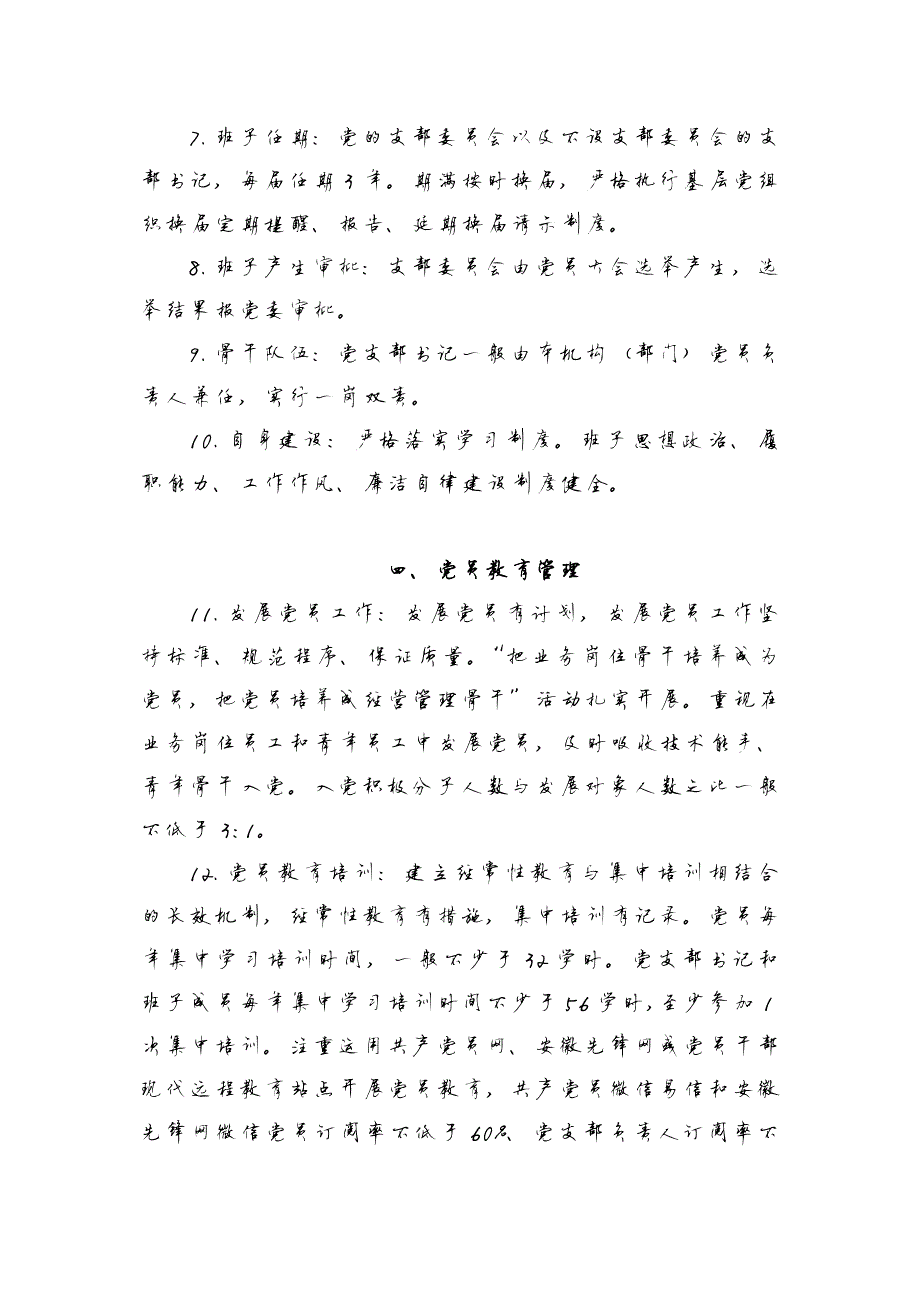 7.班子任期：党的支部委员会以及不设支部委员会的支
部书记，每届任期3年。期满按时换届，严格执行基层党组
织换届定期提醒、报告、延期换届请示制度。
8.班子产生审批：支部委员会由党员大会选举产生，选
举结果报党委审批。
9.骨干队伍：党支部书记一般由本机构（部门）党员负
责人兼任，实行一岗双责。
10.自身建设：严格落实学习制度。班子思想政治、履
职能力、工作作风、廉洁自律建设制度健全。
四、党员教育管理
11.发展党员工作：发展党员有计划，发展党员工作坚
持标准、规范程序、保证质量。“把业务岗位骨干培养成为
党员，把党员培养成经营管理骨干”活动扎实开展。重视在
业务岗位员工和青年员工中发展党员，及时吸收技术能手、
青年骨干入党。入党积极分子人数与发展对象人数之比一般
不低于3:1。
12.党员教育培训：建立经常性教育与集中培训相结合
的长效机制，经常性教育有措施，集中培训有记录。党员每
年集中学习培训时间，一般不少于32学时。党支部书记和
班子成员每年集中学习培训时间不少于56学时,至少参加1
次集中培训。注重运用共产党员网、安徽先锋网或党员干部
现代远程教育站点开展党员教育，共产党员微信易信和安徽
先锋网微信党员订阅率不低于60%、党支部负责人订阅率不